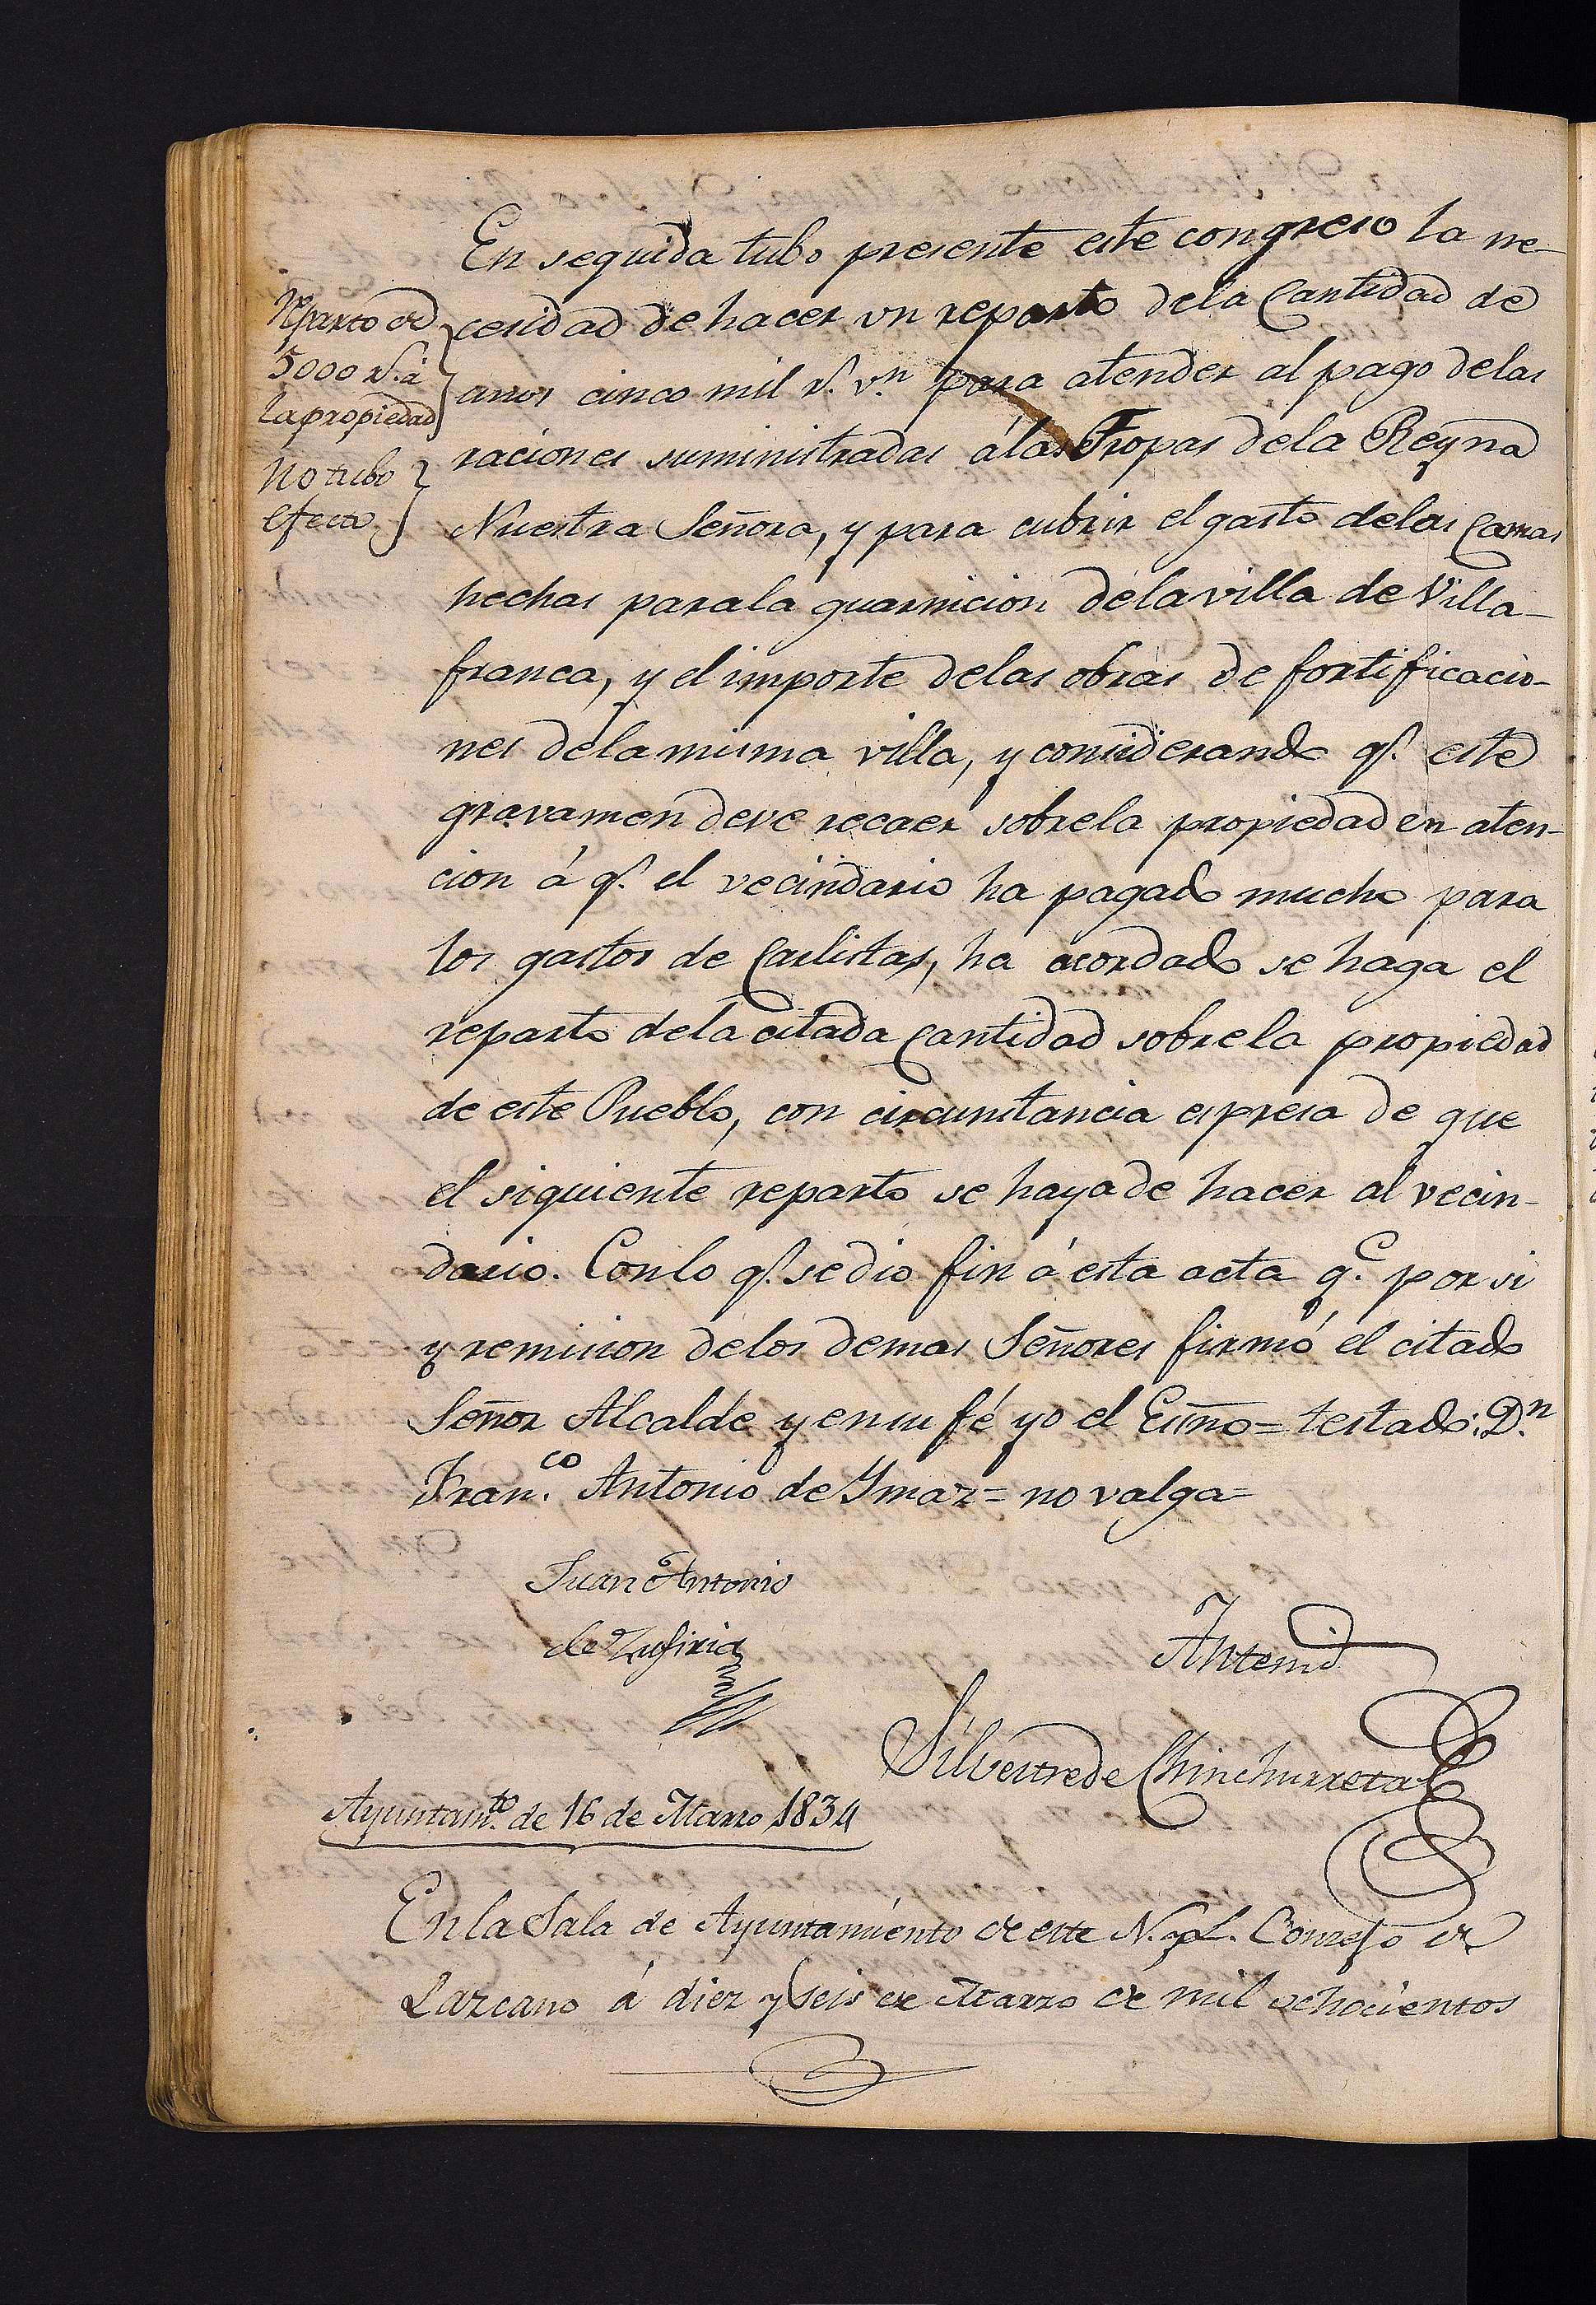 En seguida tubo presente este congreso la ne-
Reparto de
5000 r.s á
la propiedad
No tubo
efecto
cesidad de hacer un reparto dela Cantidad de
anos cinco mil r.s v.n para atender al pago delas
raciones suministradas álas Tropas dela Reyna
Nuestra Señora, y para cubrir el gasto delas Camas
hechas parala guarnicion dela villa de Villa-
franca, y el importe delas obras de fortificacio-
nes dela misma villa, y considerando q.e este
gravamen deve recaer sobrela propiedad en aten-
cion á q.e el vecindario ha pagado mucho para
los gastos de Carlistas, ha acordado se haga el
reparto dela citada Cantidad sobrela propiedad
de este Pueblo, con circunstancia espresa de que
el siguiente reparto se haya de hacer al vecin-
dario. Conlo q.e sedio fin á esta acta q.e por si
y remision delos demas Señores firmó el citado
Señor Alcalde y ensu fé yo el Essño = testado: D.n
Fran.co Antonio de Ymaz = no valga =
Juan Antonio
de Zufiria
Antemi
Silvestre de Chinchurreta
Ayuntam.to de 16 de Marzo 1834
Enla Sala de Ayuntamiento de este N. y L. Concejo de
Lazcano á diez y seis de Marzo de mil ochocientos